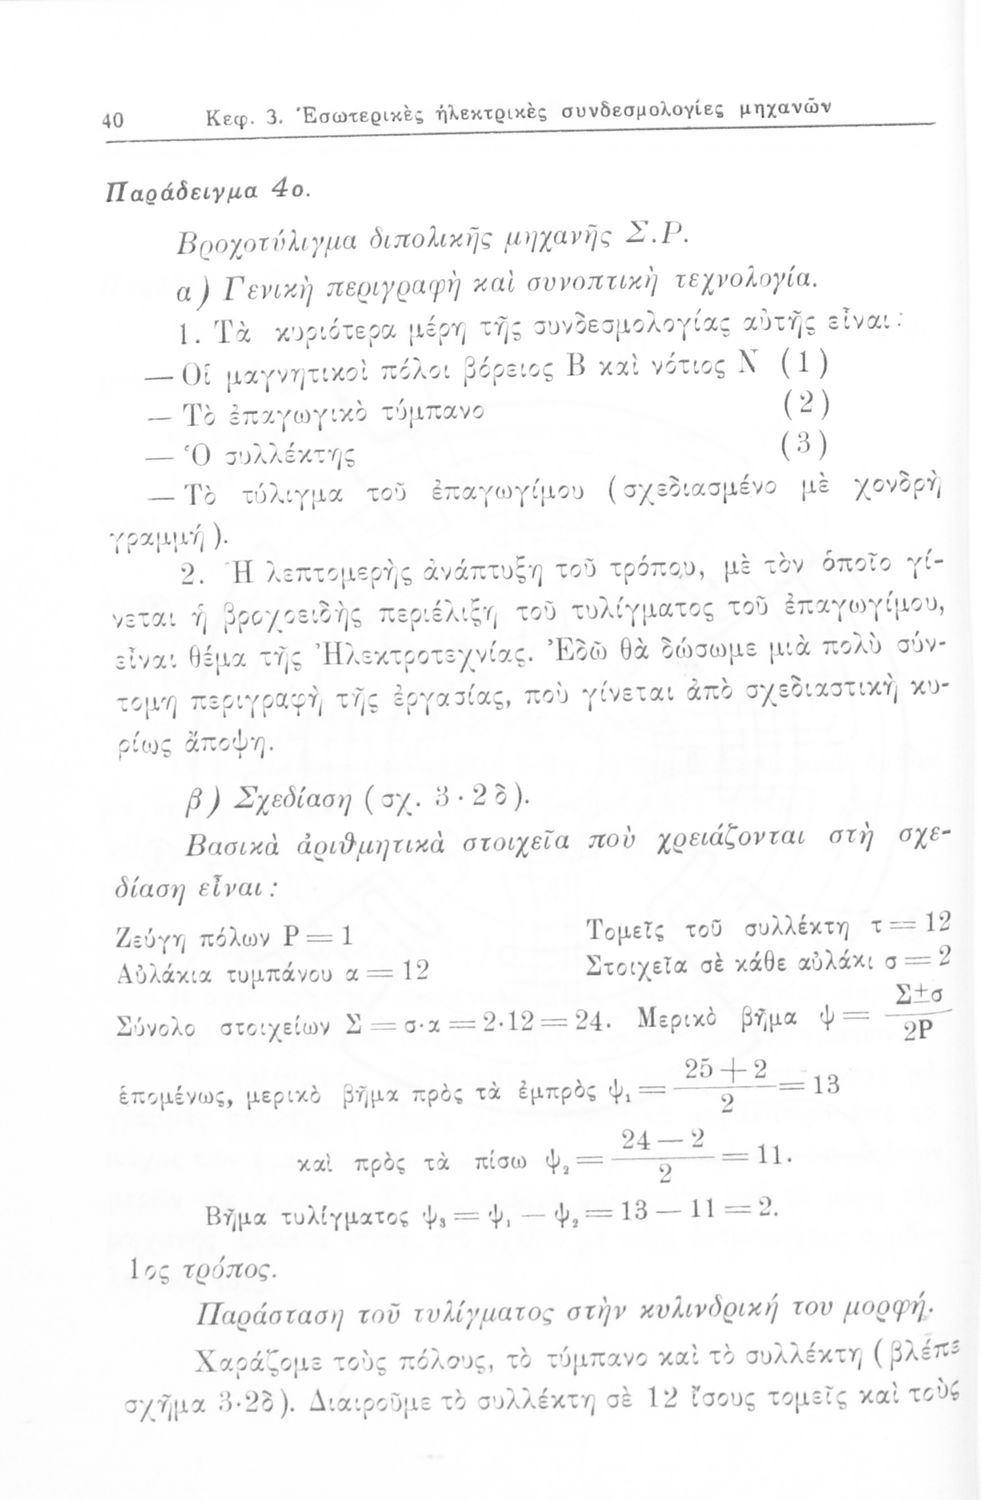 40 Κεφ. 3. Ἐσωτερικὲς ἠλεκτρικὲς συνδεσμολογίες μηχανῶν
Παράδειγμα 4ο.
Βροχοτύλιγμα διπολικῆς μηχανῆς Σ.Ρ.
α) Γενικὴ περιγραφὴ καὶ συνοπτικὴ τεχνολογία.
1. Τὰ κυριότερα μέρη τῆς συνδεσμολογίας αὐτῆς εἶναι:
— Οἱ μαγνητικοὶ πόλοι βόρειος Β καὶ νότιος Ν (1)
— Τὸ ἐπαγωγικὸ τύμπανο (2)
— Ὁ συλλέκτης (3)
— Τὸ τύλιγμα τοῦ ἐπαγωγίμου (σχεδιασμένο μὲ χονδρὴ
γραμμή).
2. Ἡ λεπτομερὴς ἀνάπτυξη τοῦ τρόπου, μὲ τὸν ὁποῖο γί-
νεται ἡ βροχοειδὴς περιέλιξη τοῦ τυλίγματος τοῦ ἐπαγωγίμου,
εἶναι θέμα τῆς Ἠλεκτροτεχνίας. Ἐδῶ θὰ δώσωμε μιὰ πολὺ σύν-
τομη περιγραφὴ τῆς ἐργασίας, ποὺ γίνεται ἀπὸ σχεδιαστικὴ κυ-
ρίως ἄποψη.
β) Σχεδίαση (σχ. 3·2δ).
Βασικὰ ἀριθμητικὰ στοιχεῖα ποὺ χρειάζονται στὴ σχε-
δίαση εἶναι:
Ζεύγη πόλων Ρ = 1 Τομεῖς τοῦ συλλέκτη τ = 12
Αὐλάκια τυμπάνου α = 12 Στοιχεῖα σὲ κάθε αὐλάκι σ = 2
Σύνολο στοιχείων Σ = σ·α = 2·12 = 24. Μερικὸ βῆμα ψ = Σ±σ / 2Ρ
ἑπομένως, μερικὸ βῆμα πρὸς τὰ ἐμπρὸς ψ₁ = 25 + 2 / 2 = 13
καὶ πρὸς τὰ πίσω ψ₂ = 24 — 2 / 2 = 11.
Βῆμα τυλίγματος ψ₃ = ψ₁ — ψ₂ = 13 — 11 = 2.
1ος τρόπος.
Παράσταση τοῦ τυλίγματος στὴν κυλινδρική του μορφή.
Χαράζομε τοὺς πόλους, τὸ τύμπανο καὶ τὸ συλλέκτη (βλέπε
σχῆμα 3·2δ). Διαιροῦμε τὸ συλλέκτη σὲ 12 ἴσους τομεῖς καὶ τοὺς